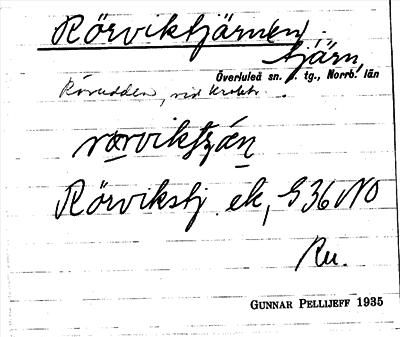 Rörviktjärnen,
tjärn,
Överluleå sn. o. tg., Norrb. län
Rörudden, vid
rœrviktjạ́n
Rörvikstj ek, S 36 NO
Ru.
GUNNAR PELLIJEFF 1935